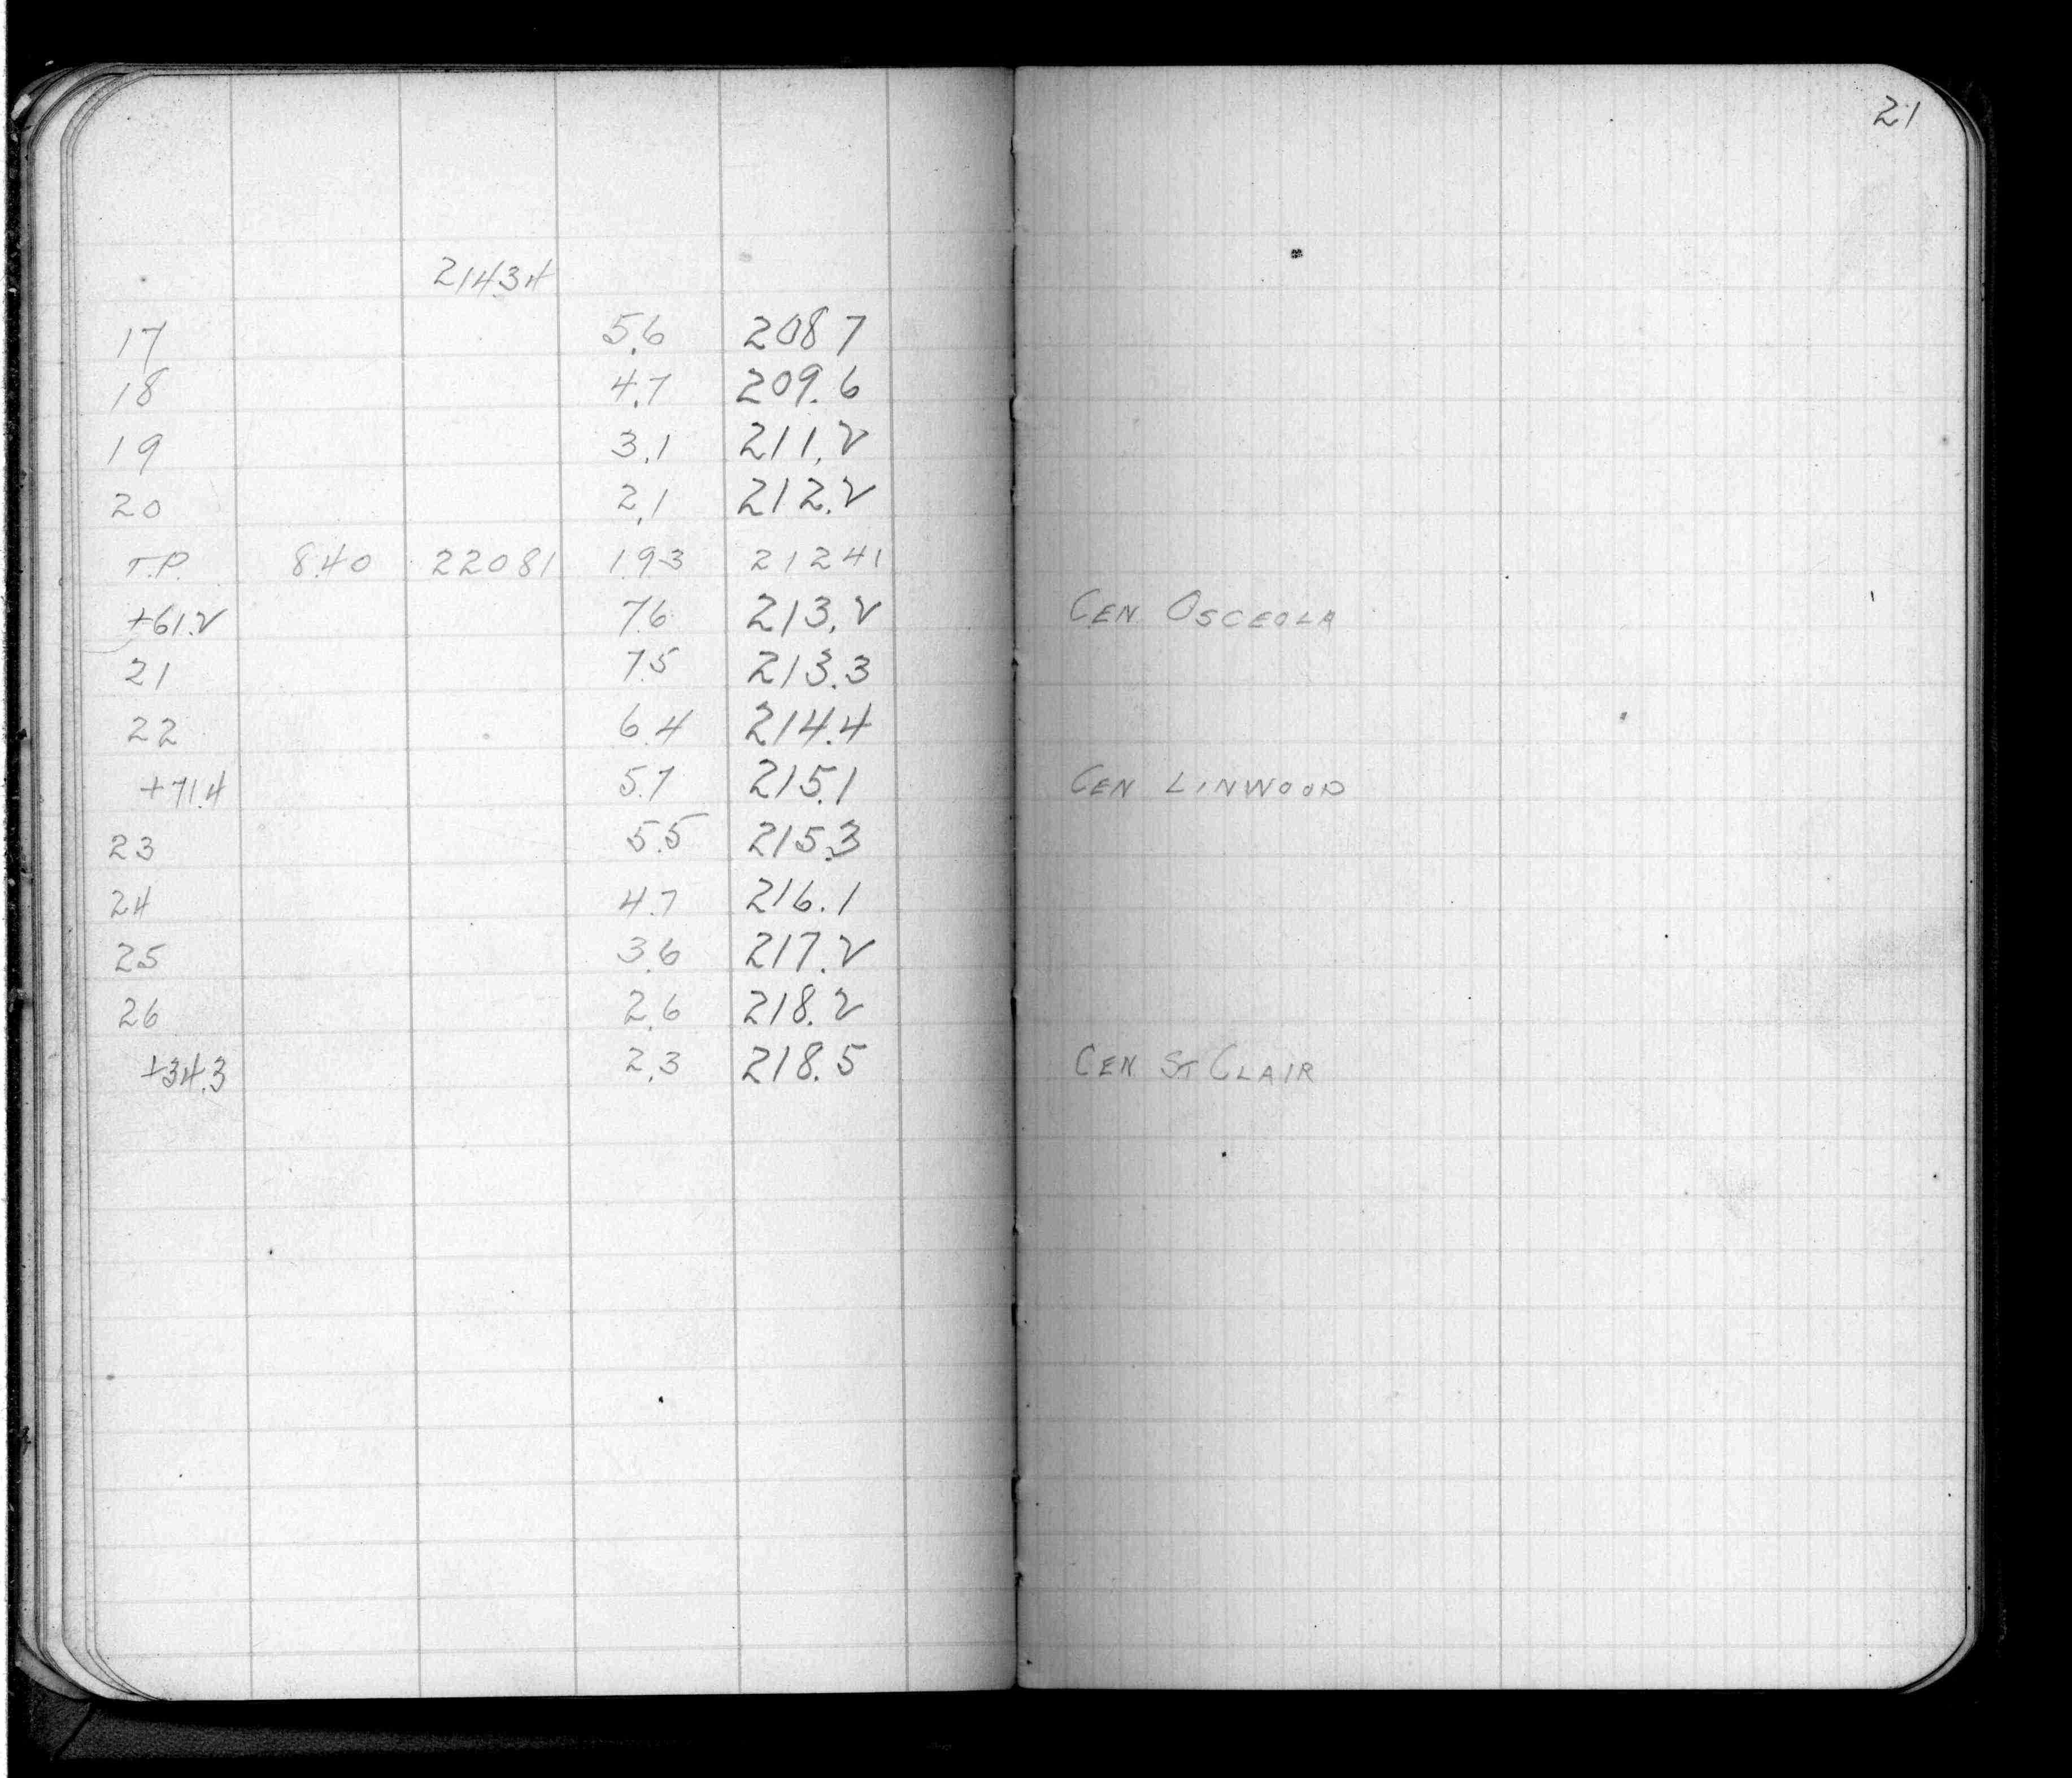 21
21434
17 5.6 208 7
18 4.7 209.6
19 3.1 211.2
20 2.1 212.2
T.P. 8.40 220 81 1.93 212 41
+61.2 7.6 213.2 CEN. OSCEOLA
21 7.5 213.3
22 6.4 214.4
+71.4 5.7 215.1 CEN LINWOOD
23 5.5 215.3
24 4.7 216.1
25 3.6 217.2
26 2.6 218.2
+34.3 2.3 218.5 CEN. ST CLAIR